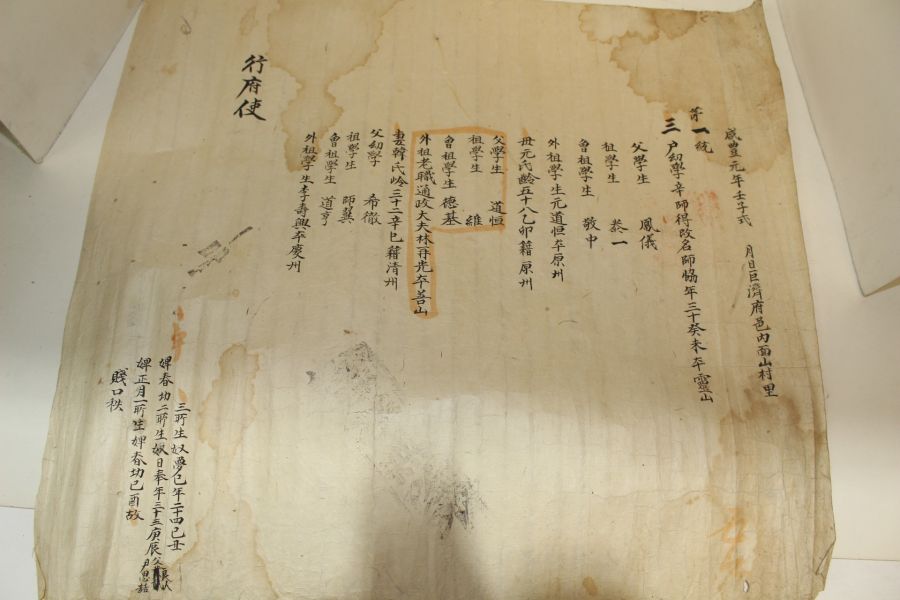 咸豊元年壬子式　月日巨濟府邑內面山村里
第一統
三戶幼學辛師得改名師恊年三十癸未本靈山
父學生　鳳儀
祖學生　泰一
曾祖學生　敬中
外祖學生元道恒本原州
母元氏齡五十八乙卯籍原州
父學生　道恒
祖學生　維
曾祖學生德基
外祖老職通政大夫林再光本善山
妻韓氏齡三十二辛巳籍清州
父幼學　希徹
祖學生　師冀
曾祖學生　道亨
外祖學生李壽興本慶州
行府使
賤口秩
婢正月一所生婢春切己酉故
婢春切二所生奴日奉年三十五庚辰父良人
三所生奴夢乭年二十四己丑